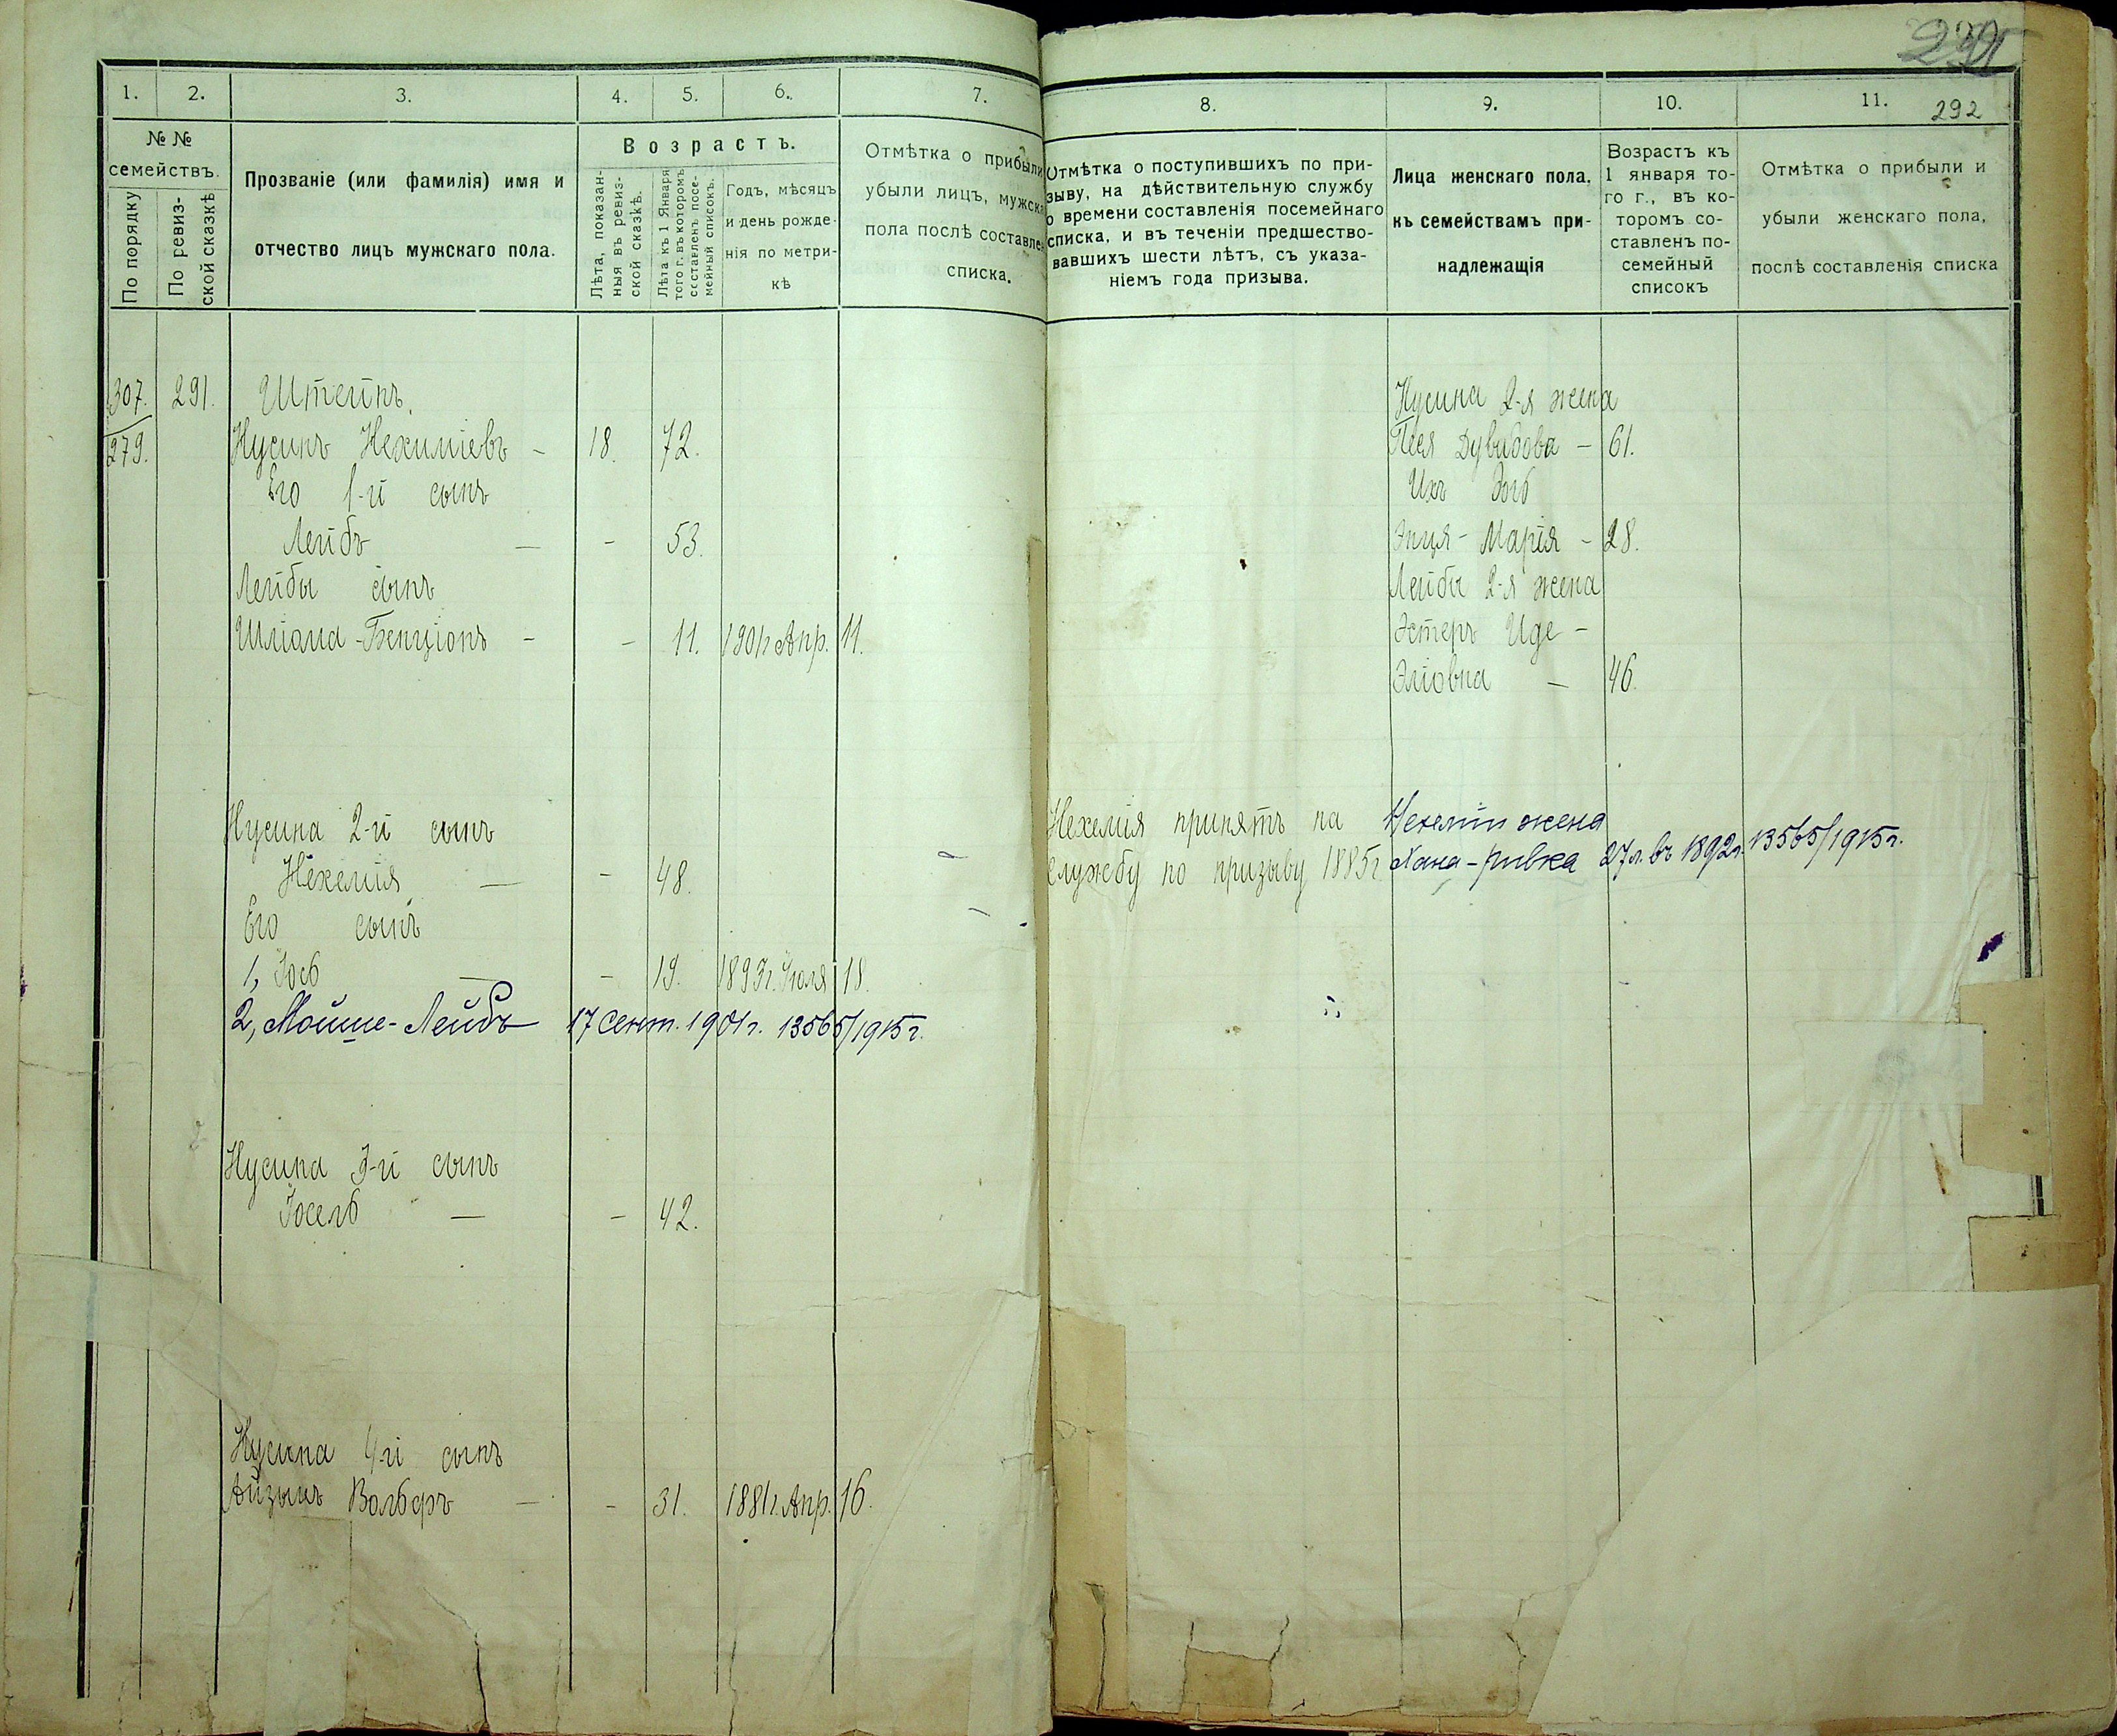 292
1. 2. 3. 4. 5. 6. 7.
№ №
семействъ.
По порядку
По ревиз-
ской сказкѣ
Прозваніе (или фамилія) имя и
отчество лицъ мужскаго пола.
Возрастъ.
Лѣта, показан-
ныя въ ревиз-
ской сказкѣ.
Лѣта къ 1 Января
того г. въ которомъ
составленъ посе-
мейный списокъ.
Годъ, мѣсяцъ
и день рожде-
нія по метри-
кѣ
Отмѣтка о прибыли
убыли лицъ, мужск
пола послѣ составлен
списка.
307. 291. Штейнъ.
279. Нусинъ Нехиміевъ - 18. 72.
Его 1-й сынъ
Лейбъ — - 53.
Лейбы сынъ
Шліома-Бенціонъ - - 11. 1901г. Апр. 11.
Нусина 2-й сынъ
Нехемія — - 48.
Его сынъ
1, Іось — - 19. 1893г. Іюля 18.
2, Мойше-Лейбъ 17 Сент. 1901г. 13565/1915г.
Нусина 3-й сынъ
Іосель — - 42.
Нусина 4-й сынъ
Айзыкъ Вольфъ — - 31. 1881г. Апр. 16.
8. 9. 10. 11.
Отмѣтка о поступившихъ по при-
зыву, на дѣйствительную службу
о времени составленія посемейнаго
списка, и въ теченіи предшество-
вавшихъ шести лѣтъ, съ указа-
ніемъ года призыва.
Лица женскаго пола,
къ семействамъ при-
надлежащія
Возрастъ къ
1 января то-
го г., въ ко-
торомъ со-
ставленъ по-
семейный
списокъ
Отмѣтка о прибыли и
убыли женскаго пола,
послѣ составленія списка
Нусина 2-я жена
Песя Дувидова - 61.
Ихъ дочь
Энця-Марія - 28.
Лейбы 2-я жена
Эстеръ Иде -
Эліовна — 46.
Нехемія принятъ на
службу по призыву 1885г.
Нехеміи жена
Хана-Ривка 27 л. въ 1892г. 13565/1915г.